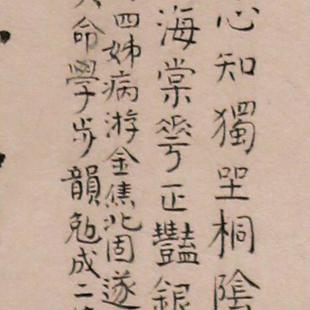 心知獨坐桐陰
海棠花正豔銀
四姊病游金焦北固遂
命學步韻勉成二